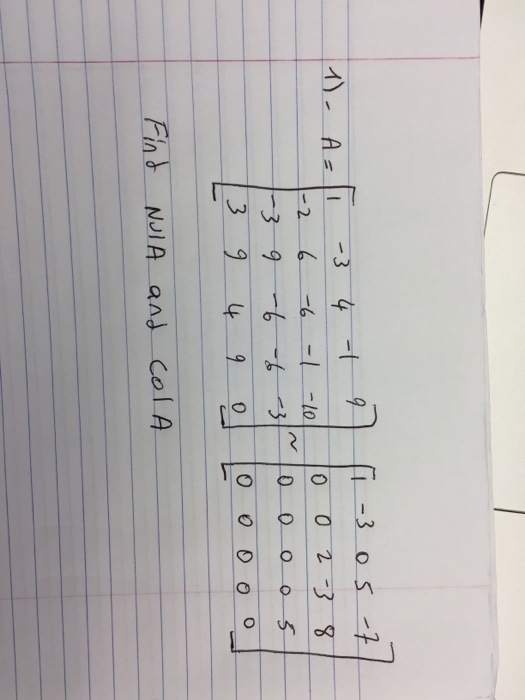 1)- A = [ 1 -3 4 -1 9 ] ~ [ 1 -3 0 5 -7 ]
-2 6 -6 -1 -10 0 0 2 -3 8
-3 9 -6 -6 -3 0 0 0 0 5
3 9 4 9 0 0 0 0 0 0
Find NulA and ColA